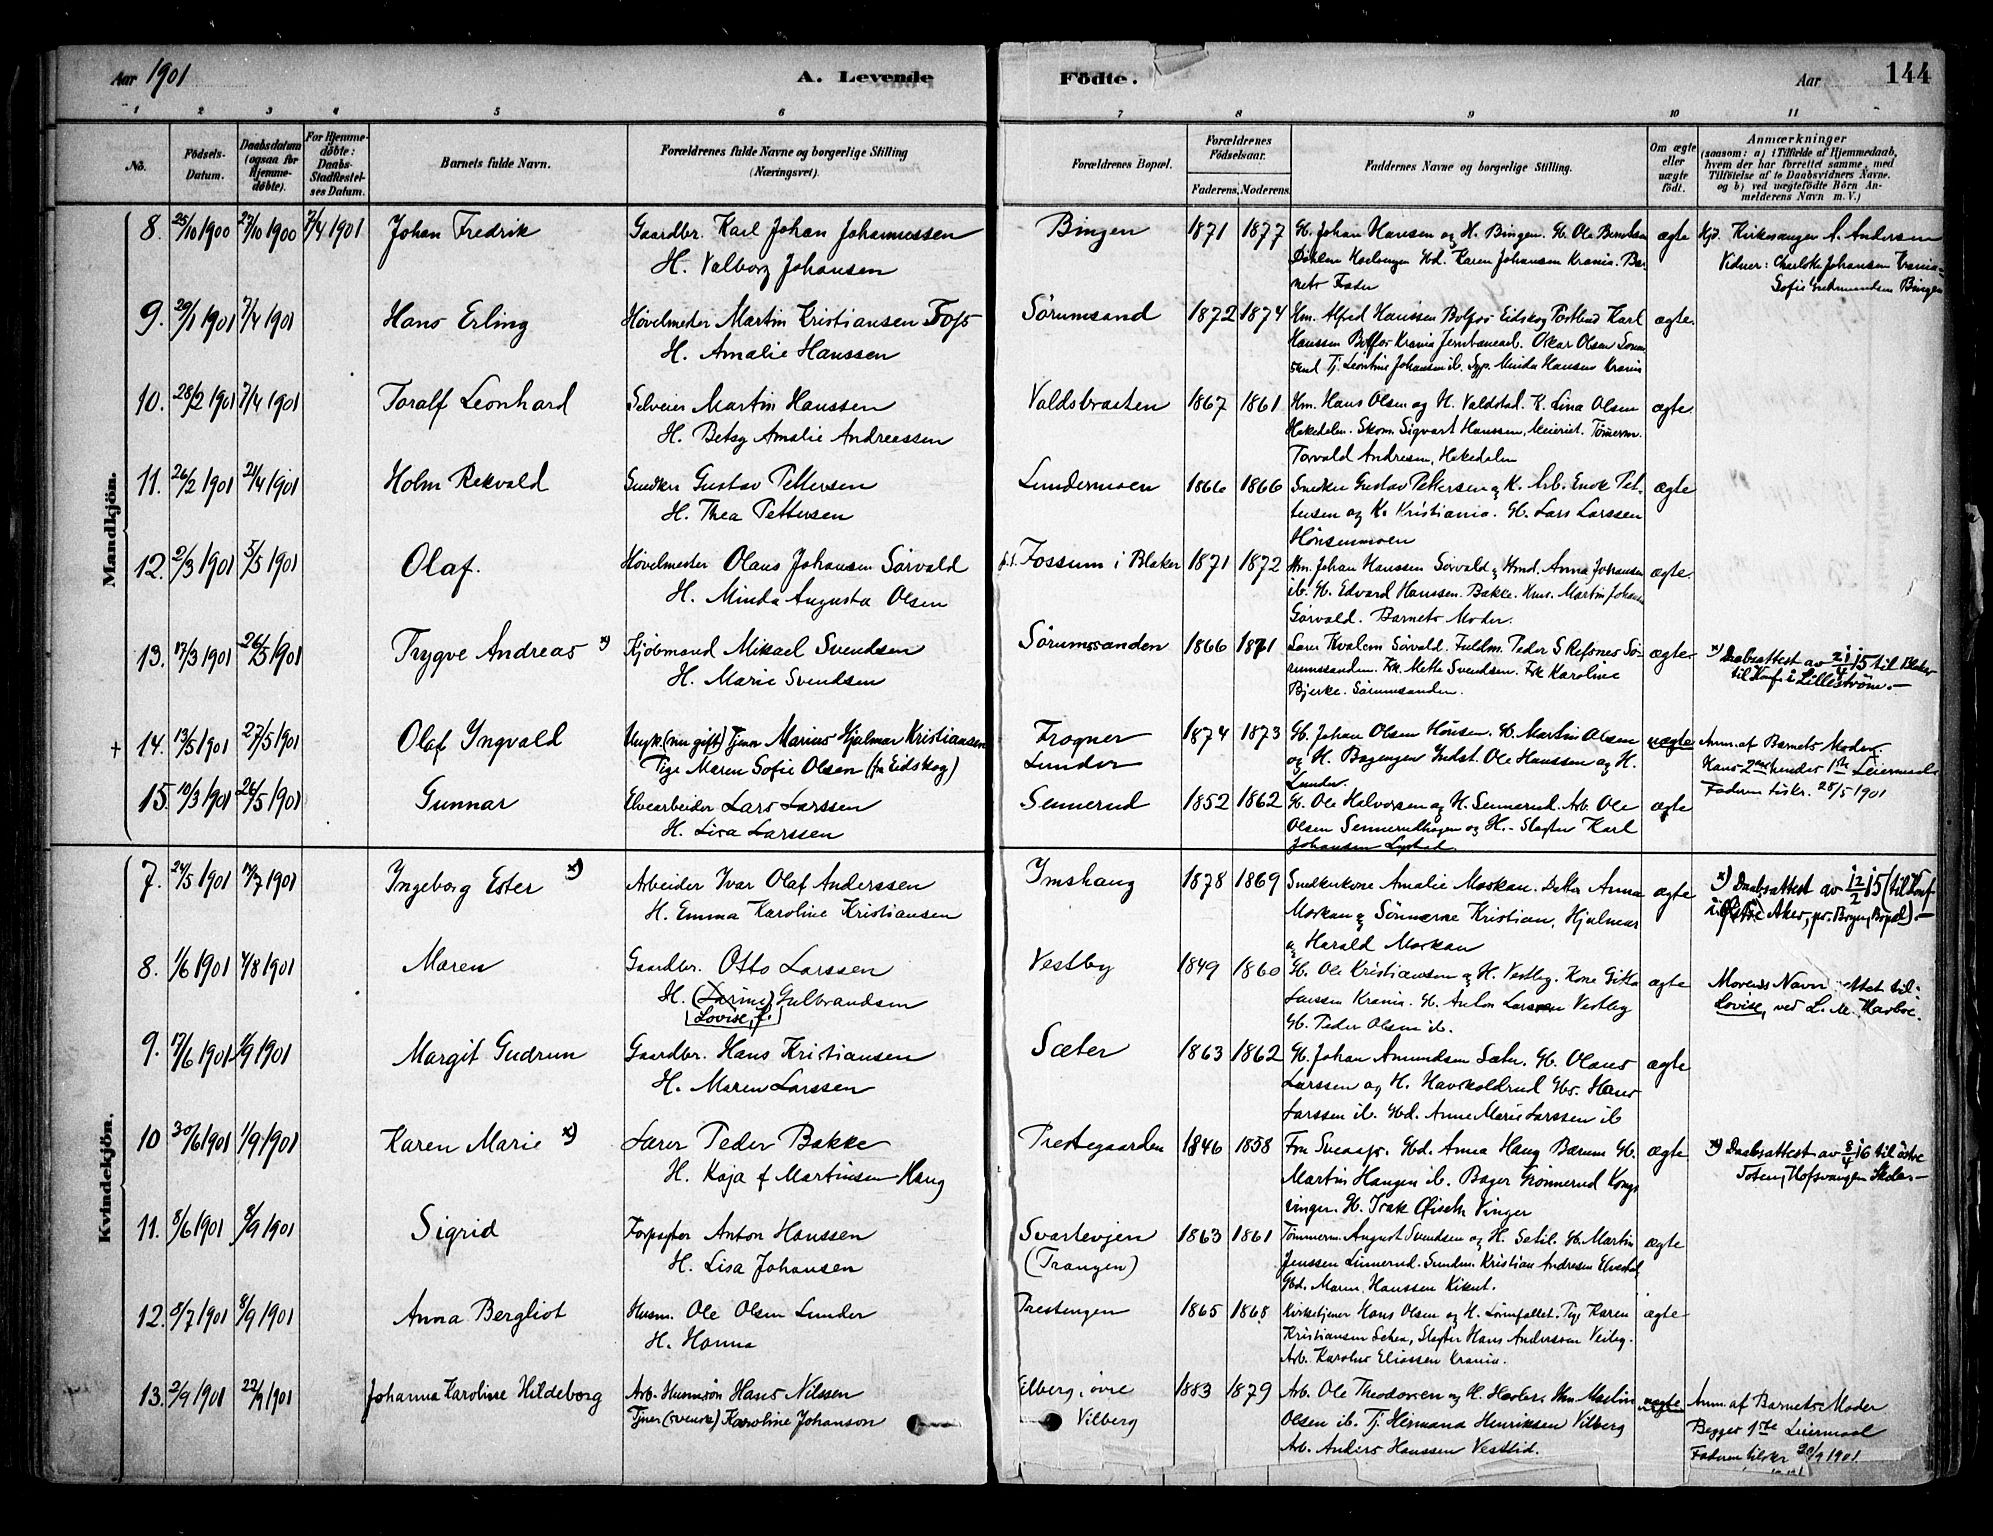 Aar 1901
A. Levende
Födte.
Aar
144
1 2 3 4 5 6 7 8 9 10 11
No.
Födsels-Datum.
Daabsdatum (ogsaa for Hjemme-döbte).
For Hjemme-döbte: Daabs-Stadfæstel-ses Datum.
Barnets fulde Navn.
Forældrenes fulde Navne og borgerlige Stilling (Næringsvei).
Forældrenes Bopæl.
Forældrenes Födselsaar.
Faderens. Moderens.
Faddernes Navne og borgerlige Stilling.
Om ægte eller uægte födt.
Anmærkninger
(saasom: a) i Tilfælde af Hjemmedaab, hvem der har forrettet samme, med Tilföielse af to Daabsvidners Navne. og b) ved uægtefödte Börn An-melderens Navn m. V.)
Mandkjön.
8. 25/10 1900 27/10 1900 7/4 1901 Johan Fredrik Gaardbr. Karl Johan Johannessen Bingen 1871 1877 G. Johan Hansen og H. Bingen. G. Ole Berntsen ægte Hjd. Kirkesanger A. Andersen
H. Valborg Johansen Karen Johansen Krania. Bar- Vidner: Charlotte Johansen Krania
nets Fader Sofie Gudmundsen Bingen
9. 29/1 1901 7/4 1901 Hans Erling Høvelmester Martin Kristiansen Foss Sørumsand 1872 1874 Hm. Alfred Hanssen Bolfos Eidskog Postbud Karl ægte.
H. Amalie Hanssen Hanssen Krania Jernbanearb. Oskar Olsen Sørum
sand Tj. Leontine Johansen ib. Syp. Minda Hansen Krania
10. 28/2 1901 7/4 1901 Toralf Leonhard Selveier Martin Hanssen Valdsbraaten 1867 1861 Hm. Hans Olsen og H. Valdstad. K. Lina Olsen ægte.
H. Betsy Amalie Andreassen Hakedalen. Skom. Sigvart Hanssen, Meieriet. Tømmerm.
Torvald Andresen, Hakedalen
11. 26/2 1901 21/4 1901 Holm Rekvald Snedker Gustav Pettersen Lundermoen 1866 1866 Snedker Gustav Pettersen og K. Arb. Enok Pet- ægte
H. Thea Pettersen tersen og K. Kristiania. G. Lars Larssen
Hønsenmoen
12. 2/3 1901 5/5 1901 Olaf. Høvelmester Olaus Johansen Sørvald f.t. Fossum i Blaker 1871 1872 Hm. Johan Hanssen Sørvald og Hmd. Anna Johansen ægte.
H. Minda Augusta Olsen ib. G. Edvard Hanssen Bakke. Hm. Martin Johansen
Sørvald. Barnets Moder.
13. 17/3 1901 26/5 1901 Trygve Andreas x) Kjøbmand Mikael Svendsen Sørumssanden 1866 1871 Lærer Kvalem Sørvald. Fuldm. Peder S Refsnes Sø- ægte x) Daabsattest av 21/4 15 til Blaker
H. Marie Svendsen rumssanden. Frk. Mette Svendsen. Frk Karoline til Konf. i Lilleström.-
Bjerke. Sørumsanden.
† 14. 13/5 1901 27/5 1901 Olaf Yngvald Ungk. (nu gift) Tjener Marius Hjalmar Kristiansen Frogner 1874 1873 G. Johan Olsen Hønsen. G. Martin Olsen uægte Anm. af Barnets Moder.
Pige Maren Sofie Olsen (fra Eidskog) Lunder og H. Indst. Ole Hanssen og H. Hans 2det hendes 1ste Leiermaal
Lunder Faderen tilskr. 28/5 1901
15. 10/3 1901 26/5 1901 Gunnar Elvearbeider Lars Larssen Sennerud 1852 1862 G. Ole Halvorsen og H. Sennerud. Arb. Ole ægte
H. Lisa Larssen Olsen Sennerudhagen og H.- Slagter Karl
Johansen Lystad
Kvindekjön.
7. 24/5 1901 14/7 1901 Ingeborg Ester x) Arbeider Ivar Olaf Anderssen Imshaug 1878 1869 Snedkerkone Amalie Moskau. Datter Anna ægte x) Daabsattest av 12/2 15 (til Konf
H. Emma Karoline Kristiansen Moskau og Sønnerne Kristian, Hjalmar i Østre Aker, pr. Bryn, Bopæl).-
og Harald Moskau
8. 1/6 1901 4/8 1901 Maren Gaardbr. Otto Larssen Vestby 1849 1860 G. Ole Kristiansen og H. Vestby. Kone Gitta ægte Morens Navn rettet til
H. (Larine) Gulbrandsen Larssen Krania. G. Anton Larssen Vestby Lovise, ved L. M. Harboe.
Lovise, f. G. Peder Olsen ib.
9. 17/6 1901 1/9 1901 Margit Gudrun Gaardbr. Hans Kristiansen Sæter 1863 1862 G. Johan Amundsen Sæter. G. Olaus ægte
H. Maren Larssen Larssen og H. Havskoldrud Gbs. Hans
Larssen ib. Gbd. Anne Marie Larssen ib
10 30/6 1901 1/9 1901 Karen Marie x) Lærer Peder Bakke Prestegaarden 1846 1858 Fru Gbd. Anna Haug Bærum G. ægte x) Daabsattest av 8/4 16 til østre
H. Kaja f Martinsen Haug Martin Haugen ib. Bager Grønnerud Kongs Toten, Hofsvangen Skoles-
vinger. G. Isak Vinger
11. 8/6 1901 8/9 1901 Sigrid Forpagter Anton Hanssen Svartevjen 1863 1861 Tømmerm. August Svendsen og H. Setil. G. Martin ægte
H. Lisa Johansen (Trangen) Jenssen Linnerud. Kristian Andresen
Gbd. Maren Hanssen Kikut.
12. 8/7 1901 8/9 1901 Anna Bergliot Husm. Ole Olsen Lunder Prestengen 1865 1868 Kirketjener Hans Olsen og H. Lørenfallet. Pige Karen ægte
H. Hanna Kristiansen Slagter Hans Anderssen Veiby.
Arb. Karolus Eliassen Krania.
13. 2/9 1901 22/9 1901 Johanna Karoline Hildeborg Arb. Husmsøn Hans Nilssen Elberg, övre 1883 1879 Arb. Ole Theodorsen og H. Martin uægte Anm. af Barnets Moder
Tjener (svensk) Karoline Johanson Vilberg Olsen ib. Tj. Hermana Henriksen Vilberg Begges 1ste Leiermaal
Arb. Anders Hanssen Vestlid. Faderen tilskr 20/9 1901